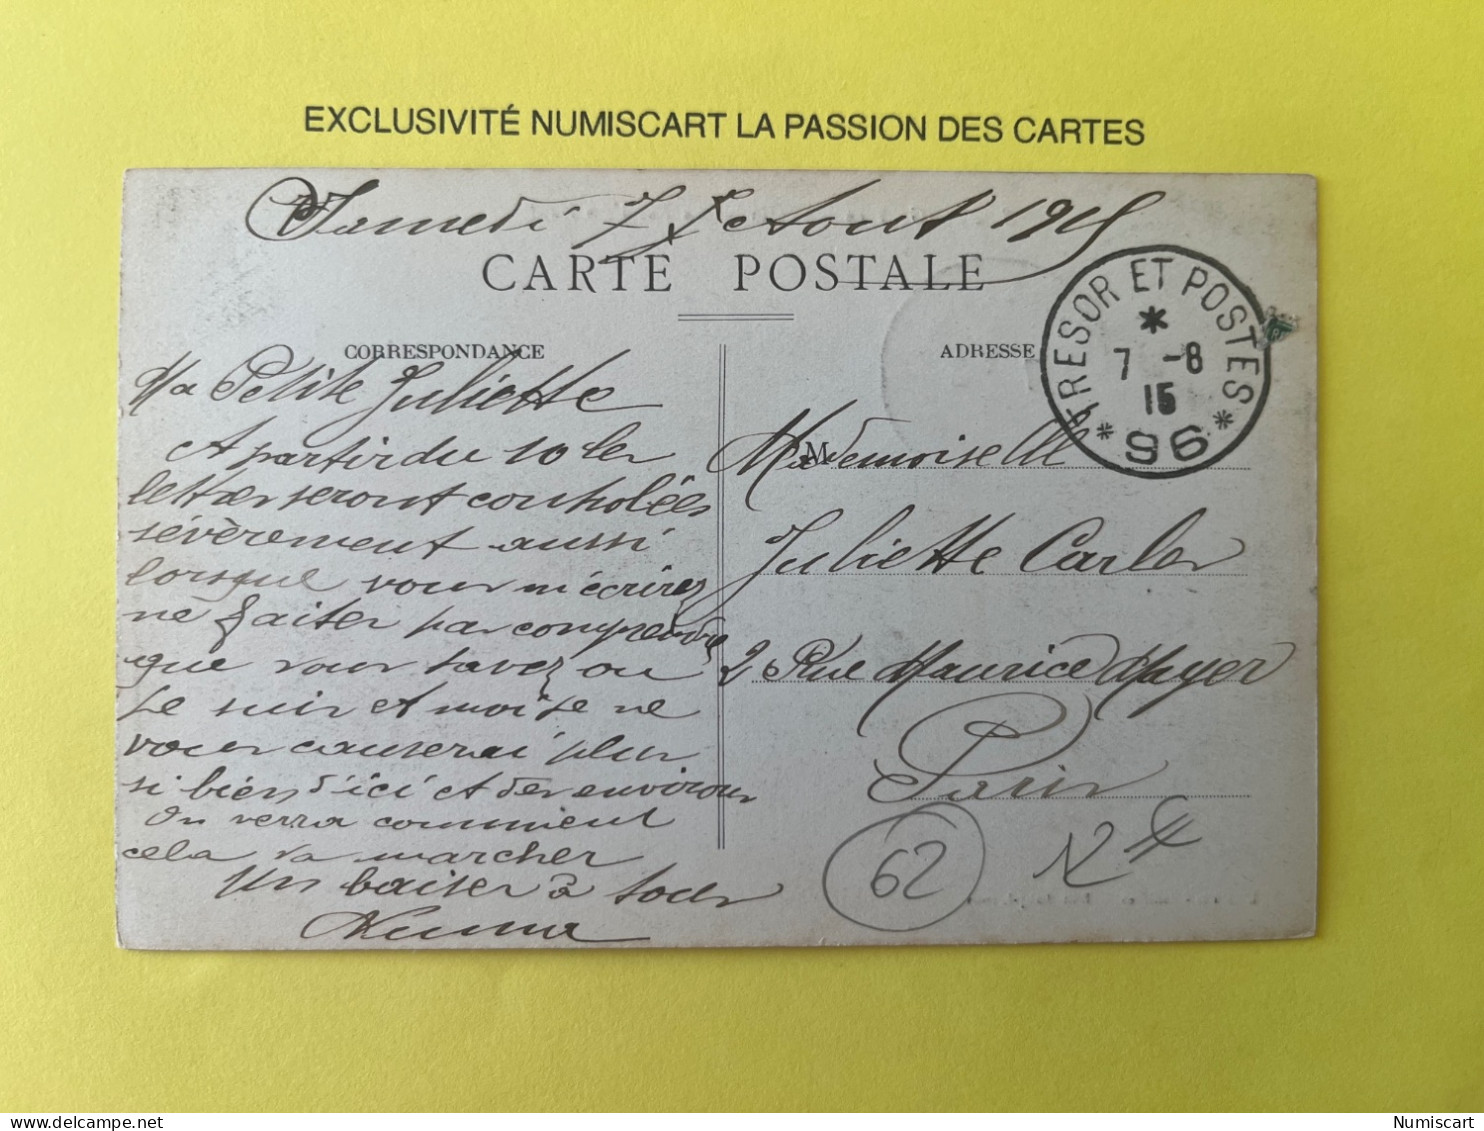 EXCLUSIVITÉ NUMISCART LA PASSION DES CARTES
Samedi 7 Août 1915
CARTE POSTALE
CORRESPONDANCE
Ma Petite Juliette
A partir du 10 les
lettres seront controlées
sévèrement aussi
lorsque vous m'écrirez
ne faites pas comprendre
que vous savez ou
je suis et moi je ne
vous causerai plus
si bien d'ici et des environs
On verra comment
cela va marcher
Un baiser à tous
ADRESSE
TRESOR ET POSTES
7 -8
15
* 96 *
M
Mademoiselle
Juliette Carles
2 Rue Maurice Mayer
Paris
62
Numiscart